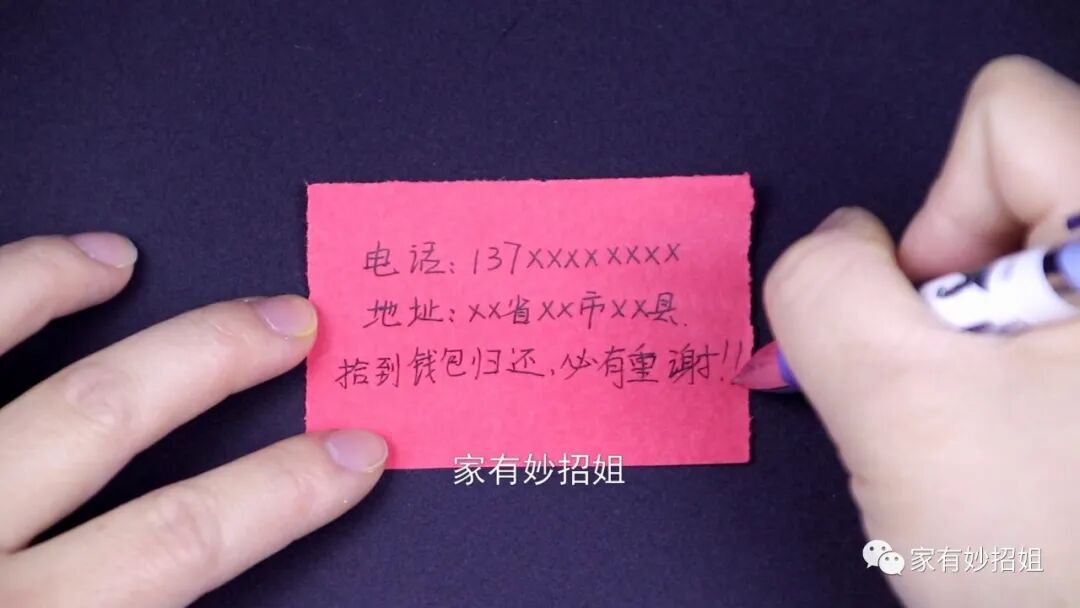 电话:137xxxxxxxx
地址:xx省xx市xx县.
拾到钱包归还,必有重谢!!
家有妙招姐
家有妙招姐